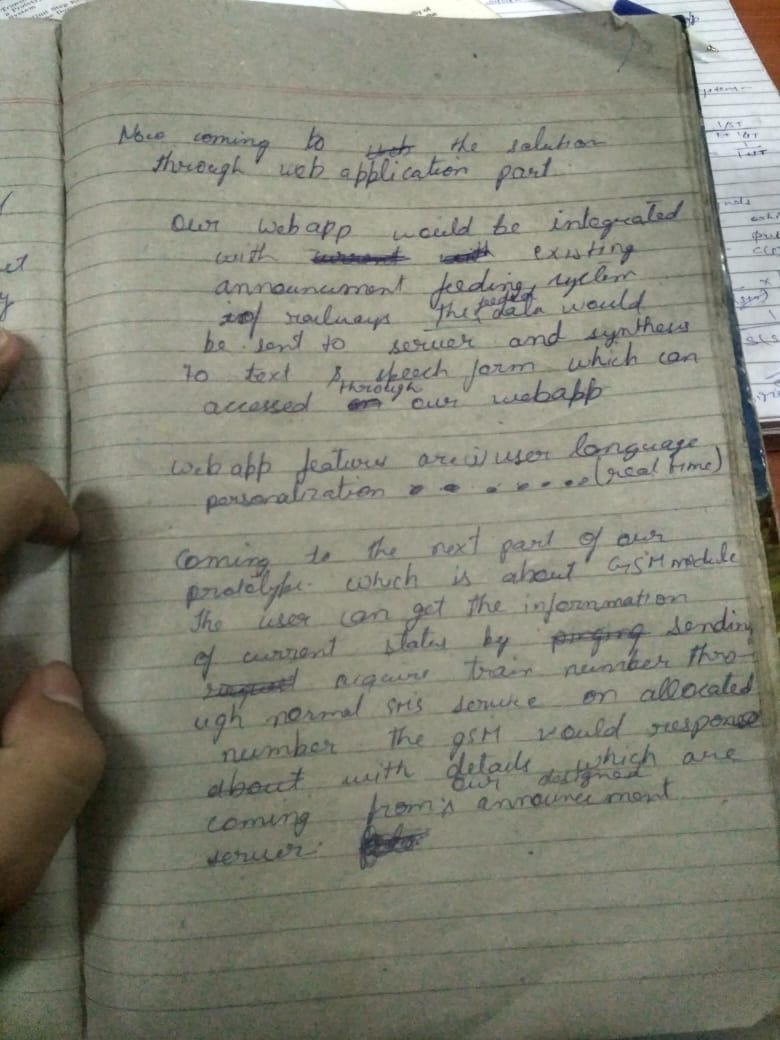 Now coming to the solution
through web application part.
Our webapp would be integrated
with existing
announcement feeding system
of railways The feeded data would
be sent to server and synthesis
to text & speech form which can
accessed through our webapp
web app features are (i) user language
personalization . . . . . . . (real time)
Coming to the next part of our
prototype. which is about GSM module
The user can get the information
of current status by sending
acquire train number thro-
ugh normal SMS service on allocated
number. The gsm would response
with details which are
coming from our designed announcement
server.